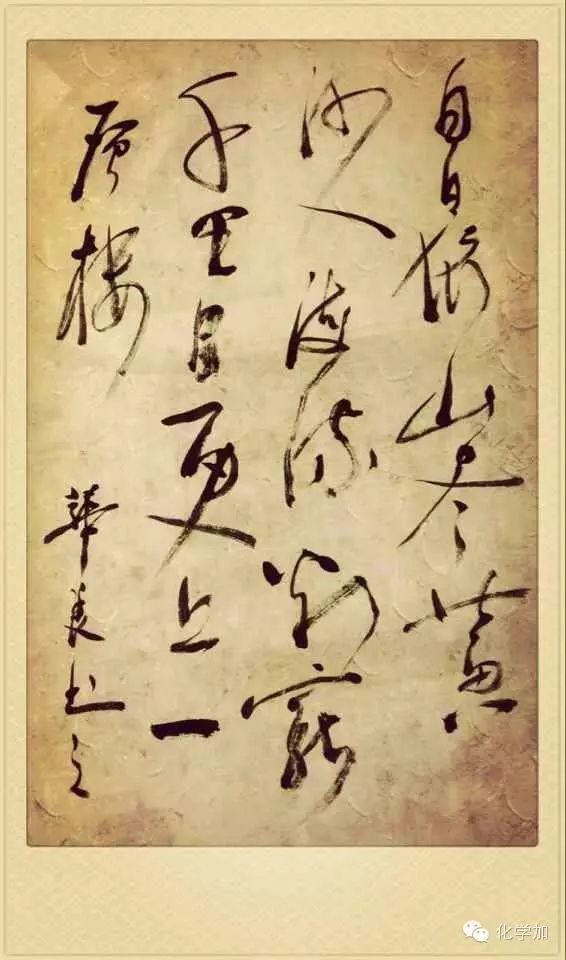 白日依山尽黄
河入海流欲窮
千里目更上一
层楼
華美书之
化学加